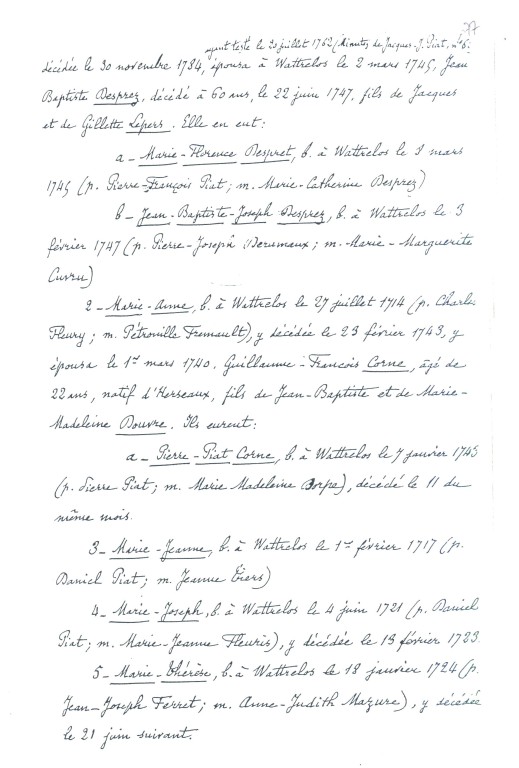 77
ayant testé le 20 juillet 1762 (Minutes de Jacques-J. Piat, n° 6.
décédée le 30 novembre 1784, épousa à Wattrelos le 2 mars 1745, Jean
Baptiste Desprez, décédé à 60 ans, le 22 juin 1747, fils de Jacques
et de Gillette Lepers. Elle en eut :
a - Marie-Florence Despret, b. à Wattrelos le 3 mars
1745 (p. Pierre-François Piat ; m. Marie-Catherine Desprez)
b - Jean-Baptiste-Joseph Desprez, b. à Wattrelos le 3
février 1747 (p. Pierre-Joseph Derumaux ; m. Marie-Marguerite
Cuvru)
2 - Marie-Anne, b. à Wattrelos le 27 juillet 1714 (p. Charles
Fleury ; m. Pétronille Fremault), y décédée le 23 février 1743, y
épousa le 1er mars 1740, Guillaume-François Corne, âgé de
22 ans, natif d'Herseaux, fils de Jean-Baptiste et de Marie-
Madeleine Douvre. Ils eurent :
a - Pierre-Piat Corne, b. à Wattrelos le 7 janvier 1743
(p. Pierre Piat ; m. Marie Madeleine), décédé le 11 du
même mois.
3 - Marie-Jeanne, b. à Wattrelos le 1er février 1717 (p.
Daniel Piat ; m. Jeanne Tiers)
4 - Marie-Joseph, b. à Wattrelos le 4 juin 1721 (p. Daniel
Piat ; m. Marie-Jeanne Fleuris), y décédée le 13 février 1723
5 - Marie-Thérèse, b. à Wattrelos le 18 janvier 1724 (p.
Jean-Joseph Ferret ; m. Anne-Judith Mazure), y décédée
le 21 juin suivant.